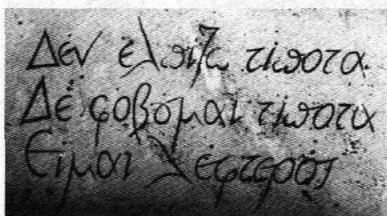 Δέν ἐλπίζω τίποτα
Δέ φοβοῦμαι τίποτα
Εἶμαι λέφτερος